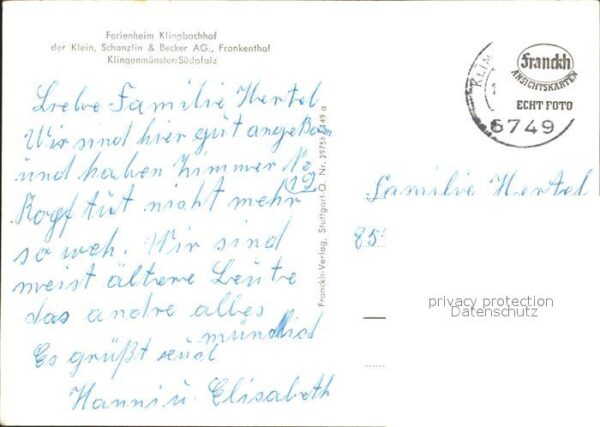 Ferienheim Klingbachhof
der Klein, Schanzlin & Becker AG., Frankenthal
Klingenmünster/Südpfalz
Liebe Familie Hertel
Wir sind hier gut
und haben Zimmer No
19
Kopf tut nicht mehr
so weh. Wir sind
meist ältere Leute
das andre alles
mündlich
Es grüßt
Hanni u. Elisabeth
Franckh-Verlag, Stuttgart-O, Nr. 29756
Franckh
ANSICHTSKARTEN
ECHT FOTO
KLIN
6749
Familie Hertel
85
privacy protection
Datenschutz